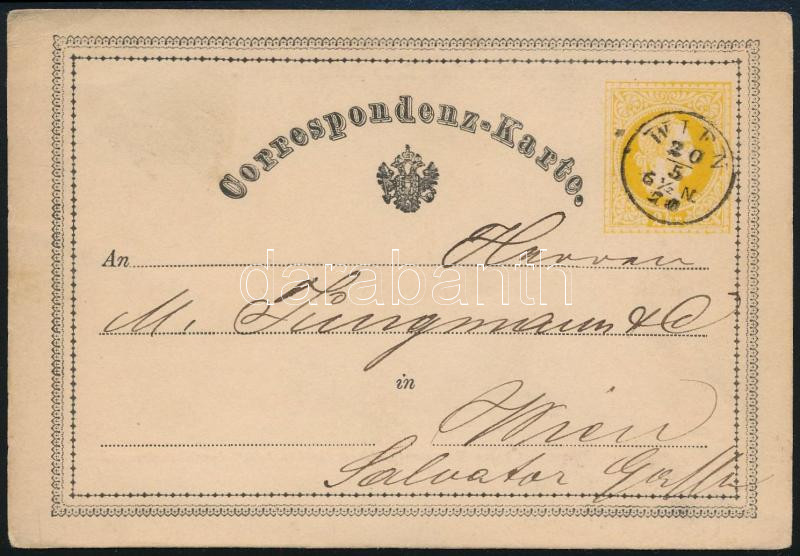 Correspondenz-Karte.
WIEN
20
5
6 ½ N
An Herren
darabanth
M. Jungmann & Co
in
Wien
Salvator Gasse